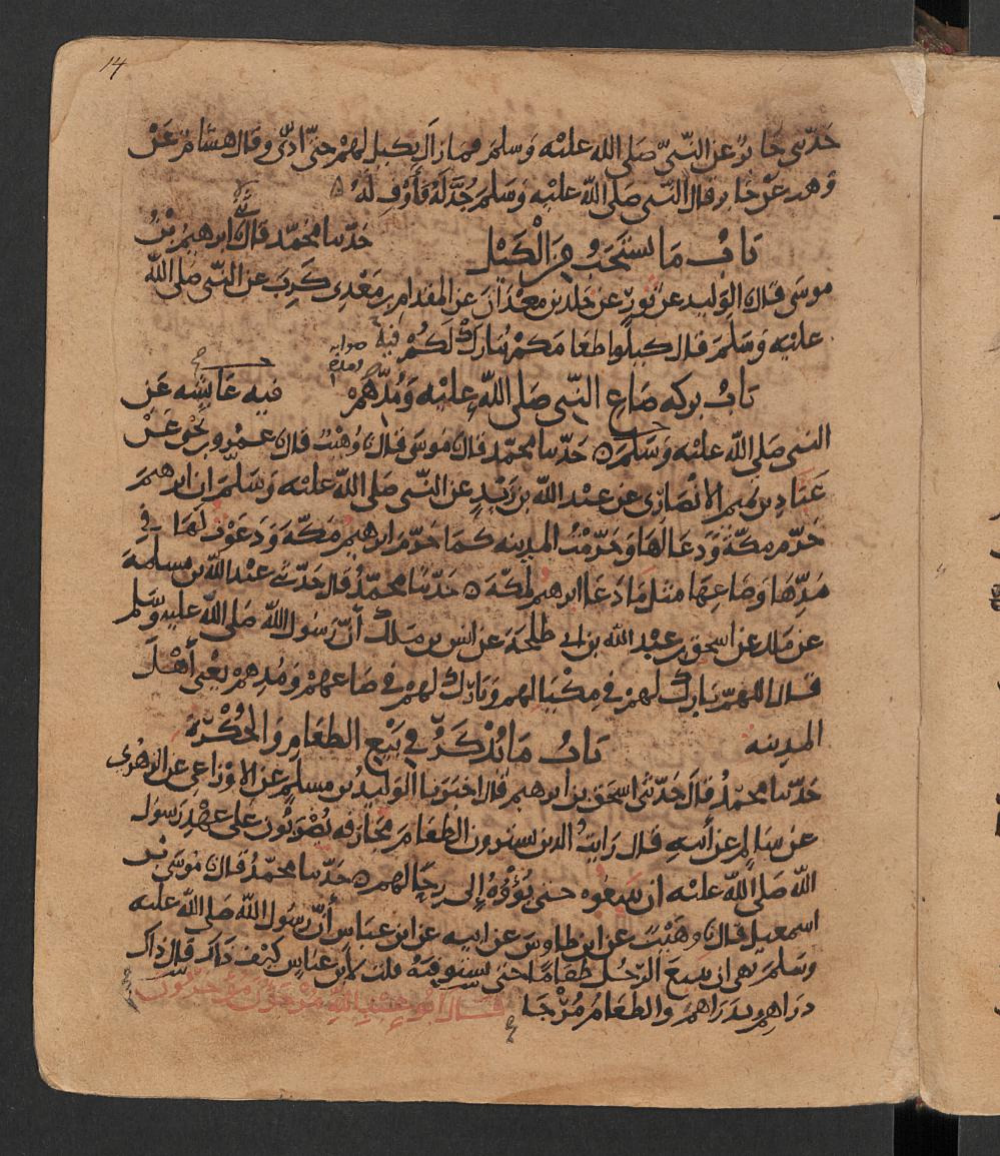 14
حدثني جابر عن النبي صلى الله عليه وسلم فما زال يكيل لهم حتى ادى وقال هشام عن
وهب عن جابر قال النبي صلى الله عليه وسلم جُذَّ له فأوف له
باب ما يستحب من الكيل حدثنا محمد قال ابرهيم بن
موسى قال الوليد عن ثور عن خلد بن معدان عن المقدام بن معدي كرب عن النبي صلى الله
عليه وسلم قال كيلوا طعامكم يبارك لكم فيه
صوابه ومده
باب بركة صاع النبي صلى الله عليه ومدهم فيه عايشة عن
النبي صلى الله عليه وسلم حدثنا محمد قال موسى قال وهيب قال عمرو بن يحيى عن
عباد بن تميم الانصاري عن عبد الله بن زيد عن النبي صلى الله عليه وسلم ان ابرهيم
حرم مكة ودعا لها وحرمت المدينة كما حرم ابرهيم مكة ودعوت لها في
مدها وصاعها مثل ما دعا ابرهيم لمكة حدثنا محمد قال حدثني عبد الله بن مسلمة
عن ملك عن اسحق بن عبد الله بن ابي طلحة عن انس بن ملك أن رسول الله صلى الله عليه وسلم
قال اللهم بارك لهم في مكيالهم وبارك لهم في صاعهم ومدهم يعني أهل
المدينه باب ما يذكر في بيع الطعام والحُكْرة
حدثنا محمد قال حدثني اسحق بن ابرهيم قال اخبرنا الوليد بن مسلم عن الاوزاعي عن الزهري
عن سالم عن أبيه قال رايت الذين يشترون الطعام مجازفه يُضْرَبُون على عهد رسول
الله صلى الله عليه ان يبيعوه حتى يُؤْوُوهُ إلى رحالهم حدثنا محمد قال موسى بن
اسمعيل قال وهيب عن ابن طاوس عن ابيه عن ابن عباس أن رسول الله صلى الله عليه
وسلم نهى ان يبيع الرجل طعاما حتى يستوفيه قلت لابن عباس كيف ذاك قال ذاك
دراهم بدراهم والطعام مُرْجَا قال ابو عبد الله مرجون مؤخرون